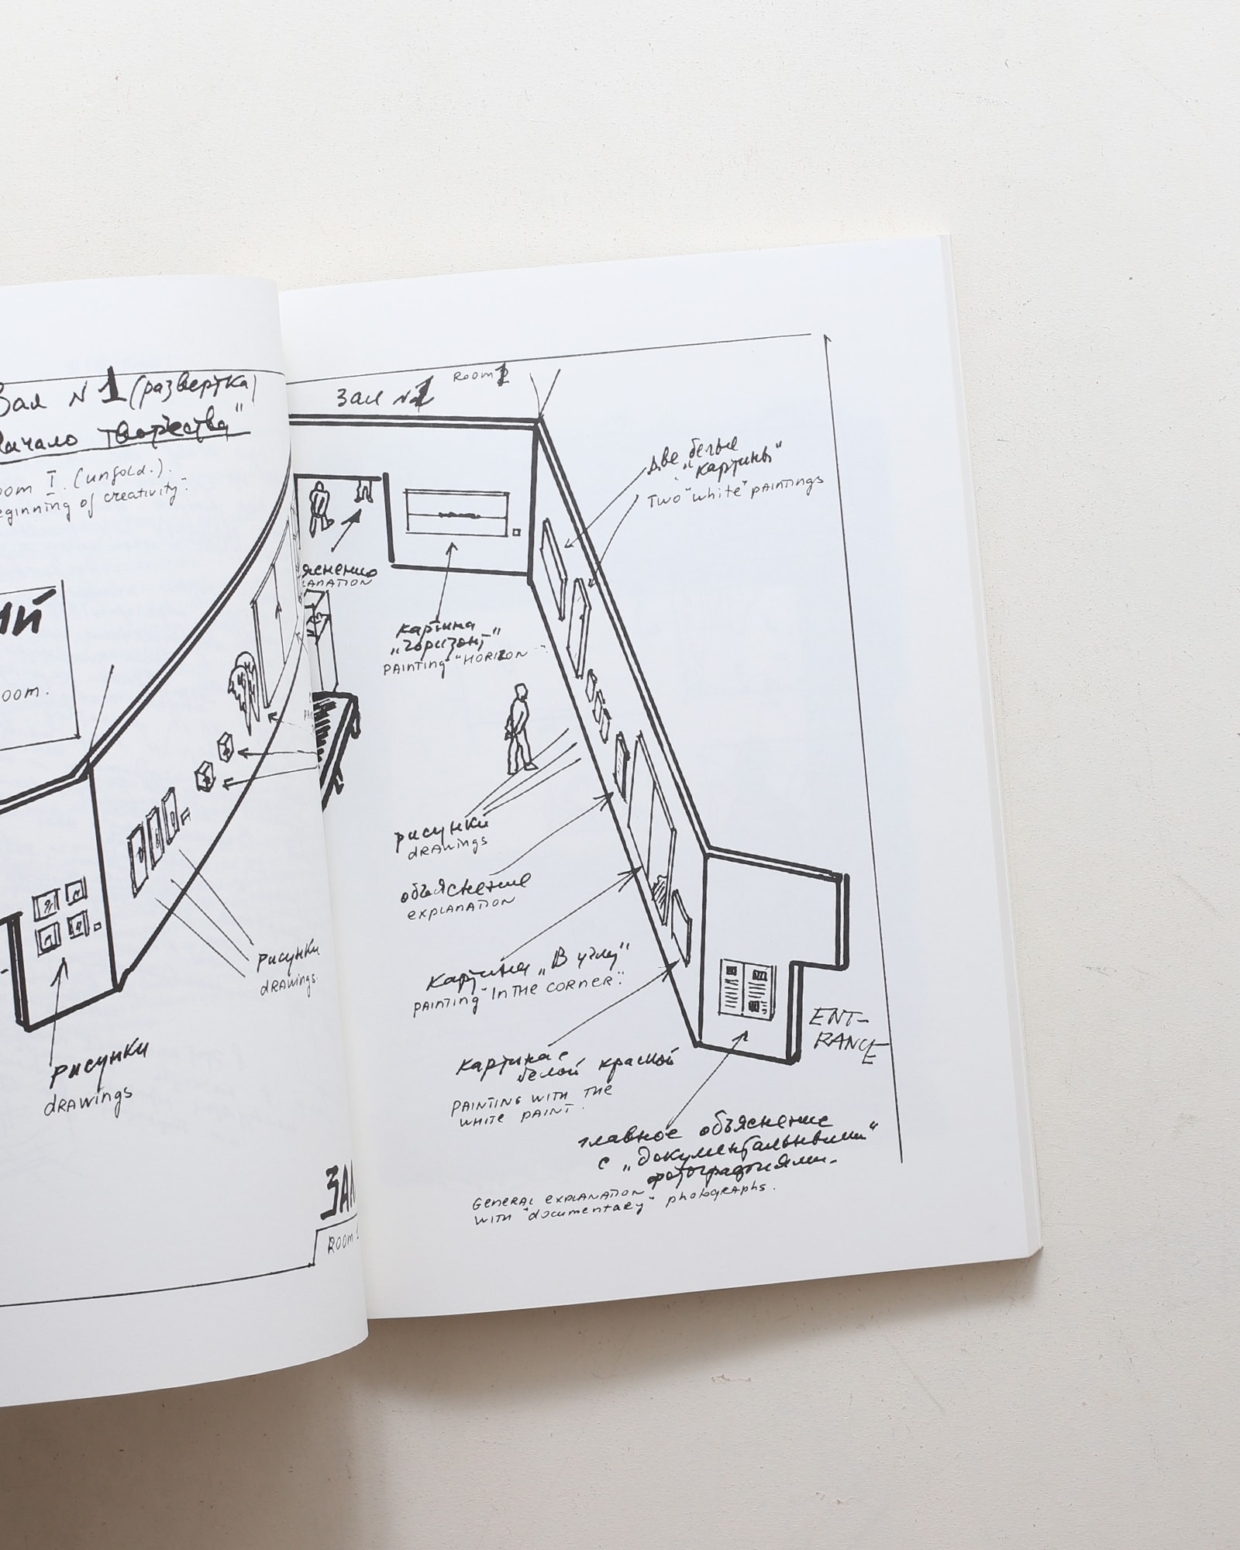 Зал N 1 (развертка)
начало творчества"
oom I. (unfold.).
eginning of creativity".
ий
oom.
рисунки
drawings
рисунки
drawings
ЗАЛ
ROOM
Зал N 1 ROOM 1
яснение
LANATION
картина
„горизонт"
PAINTING "HORIZON"
Две белые
„картины"
TWO "white" PAINTINGS
рисунки
drawings
объяснение
EXPLANATION
картина „В углу"
PAINTING "IN THE CORNER".
картина с
белой краской
PAINTING WITH THE
WHITE PAINT.
ENT-
RANCE
главное объяснение
с „документальными"
фотографиями.
GENERAL EXPLANATION
WITH "documentary" photographs.